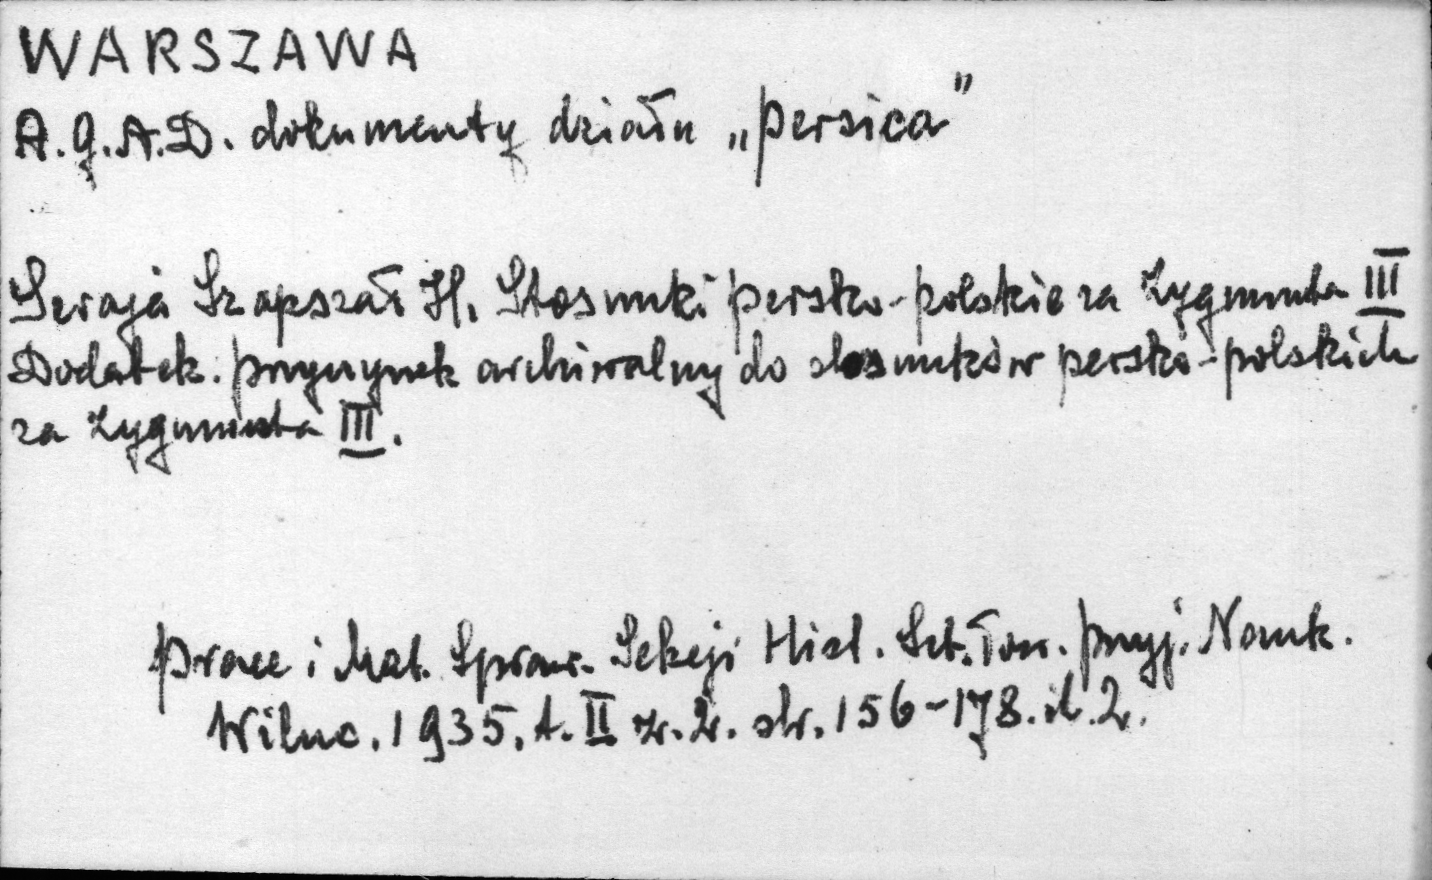 WARSZAWA
A.G.A.D. dokumenty działu „persica”
Seraja Szapszał H. Stosunki persko-polskie za Zygmunta III
Dodatek: przyczynek archiwalny do stosunków persko-polskich
za Zygmunta III.
Prace i Mat. Spraw. Sekcji Hist. Szt. Tow. Przyj. Nauk.
Wilno. 1935. t. II z. 2. str. 156-178. il. 2.